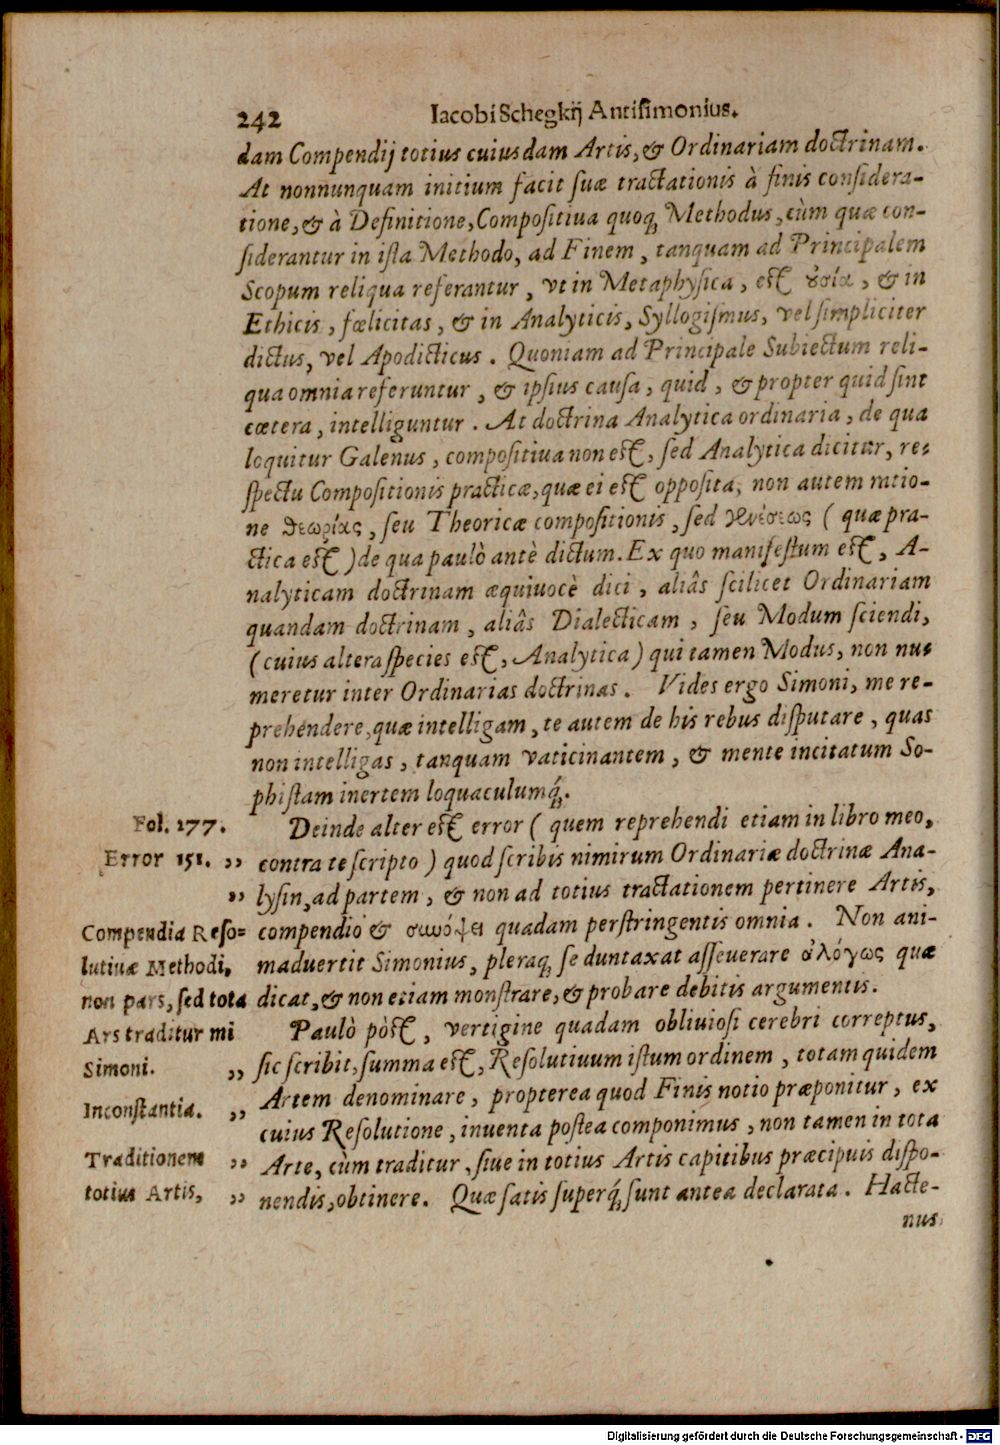 242 Iacobi Schegkij Antisimonius.
dam Compendij totius cuiusdam Artis, & Ordinariam doctrinam.
At nonnunquam initium facit suæ tractationis à finis considera-
tione, & à Definitione, Compositiua quoq; Methodus, cùm quæ con-
siderantur in ista Methodo, ad Finem, tanquam ad Principalem
Scopum reliqua referantur, vt in Metaphysica, est οὐσία, & in
Ethicis, fœlicitas, & in Analyticis, Syllogismus, vel simpliciter
dictus, vel Apodicticus. Quoniam ad Principale Subiectum reli-
qua omnia referuntur, & ipsius causa, quid, & propter quid sint
cætera, intelliguntur. At doctrina Analytica ordinaria, de qua
loquitur Galenus, compositiua non est, sed Analytica dicitur, re-
spectu Compositionis practicæ, quæ ei est opposita, non autem ratio-
ne θεωρίας, seu Theoricæ compositionis, sed γενέσεως (quæ pra-
ctica est) de qua paulò antè dictum. Ex quo manifestum est, A-
nalyticam doctrinam æquiuocè dici, aliâs scilicet Ordinariam
quandam doctrinam, aliâs Dialecticam, seu Modum sciendi,
(cuius altera species est, Analytica) qui tamen Modus, non nu-
meretur inter Ordinarias doctrinas. Vides ergo Simoni, me re-
prehendere, quæ intelligam, te autem de his rebus disputare, quas
non intelligas, tanquam vaticinantem, & mente incitatum So-
phistam inertem loquaculumq́;.
Fol. 177. Deinde alter est error (quem reprehendi etiam in libro meo,
Error 151. ,, contra te scripto) quod scribis nimirum Ordinariæ doctrinæ Ana-
,, lysin, ad partem, & non ad totius tractationem pertinere Artis,
Compendia Reso- compendio & συνόψει quadam perstringentis omnia. Non ani-
lutiuæ Methodi, maduertit Simonius, pleraq; se duntaxat asseuerare ἀλόγως quæ
non pars, sed tota dicat, & non etiam monstrare, & probare debitis argumentis.
Ars traditur mi Paulò pòst, vertigine quadam obliuiosi cerebri correptus,
Simoni. ,, sic scribit, summa est, Resolutiuum istum ordinem, totam quidem
Inconstantia. ,, Artem denominare, propterea quod Finis notio præponitur, ex
cuius Resolutione, inuenta postea componimus, non tamen in tota
Traditionem ,, Arte, cùm traditur, siue in totius Artis capitibus præcipuis dispo-
totius Artis, ,, nendis, obtinere. Quæ satis superq́; sunt antea declarata. Hacte-
nus
Digitalisierung gefördert durch die Deutsche Forschungsgemeinschaft - DFG